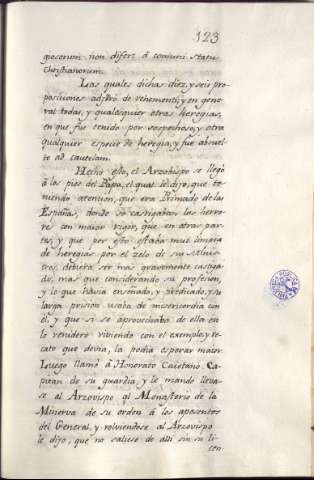 123
giosorum non difert á comuni statu
Christianorum.
Las quales dichas diez, y seis pro-
posiciones adjuró de vehementi, y en gene-
ral todas, y qualesquier otras heregias,
en que fue tenido por sospechoso, y otra
qualquier especie de heregia, y fue absuel-
to ad cautelam.
Hecho esto, el Arzobispo se llegó
á los pies del Papa, el qual le dijo, que te-
niendo atencion, que era Primado de las
Españas, donde se castigaban los herro-
res con maior rigor, que en otras par-
tes, y que por esto estaba mui limpia
de heregias por el zelo de sus Minis-
tros, debiera ser mas gravemente castiga-
do, mas que considerando su profesion,
y lo que havia enseñado, y predicado, y su
larga prision usaba de misericordia con
el, y que si se aprovechaba de ella en
lo venidero viviendo con el exemplo, y re-
cato que devia, la podia esperar maior.
Luego llamó á Honorato Caietano Ca-
pitan de su guardia, y le mandó lleva-
se al Arzovispo al Monasterio de la
Minerva de su orden á los aposentos
del General, y volviendose al Arzovispo
le dijo, que no saliese de alli sin su li-
cen-